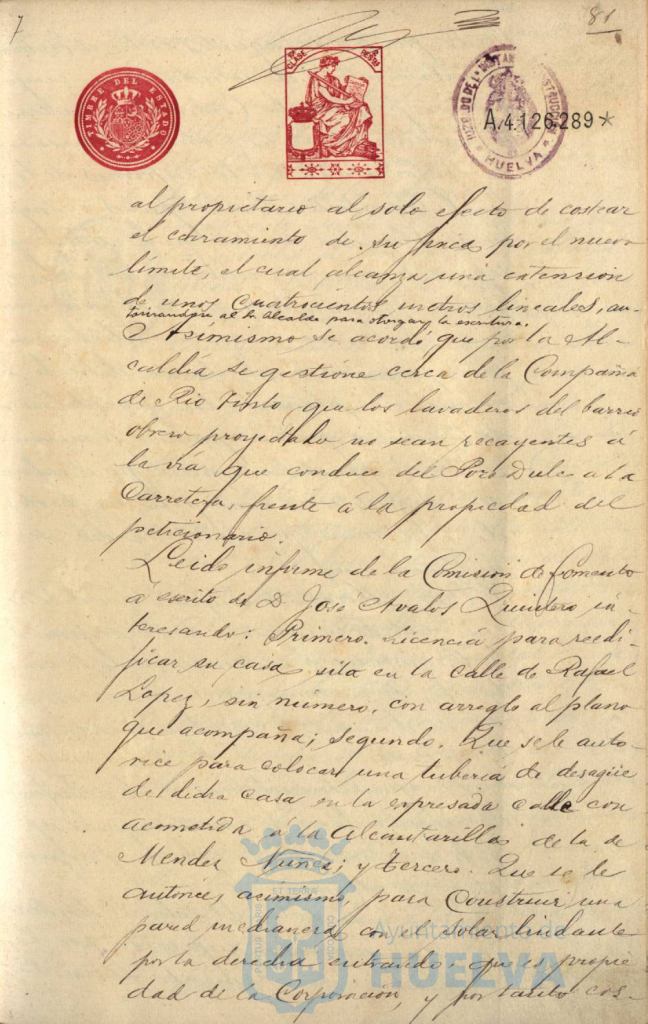 7
81
TIMBRE DEL ESTADO
CLASE
A.4.126.289*
HUELVA
al propietario al solo efecto de costear
el cerramiento de su finca por el nuevo
límite, el cual alcanza una extension
de unos cuatrocientos metros lineales, au-
torizandose al Sr. Alcalde para otorgar la escritura.
Asimismo se acordó que por la Al-
caldía se gestione cerca de la Compañia
de Rio Tinto que los lavaderos del barrio
obrero proyectado no sean recayentes á
la vía que conduce del Pozo Dulce a la
Carretera, frente á la propiedad del
peticionario.
Leido informe de la Comisión de Fomento
a escrito de D. José Avalos Quintero in-
teresando: Primero. Licencia para reedi-
ficar su casa sita en la calle de Rafael
Lopez, sin número, con arreglo al plano
que acompaña; segundo. Que se le auto-
rice para colocar una tuberia de desagüe
de dicha casa en la expresada calle con
acometida á la Alcantarilla de la de
Mendez Nuñez; y tercero. Que se le
autorice, asimismo, para construir una
pared medianera con el solar lindante
por la derecha entrando que es propie
dad de la Corporación, y por tanto cos-
Ayuntamiento de
HUELVA